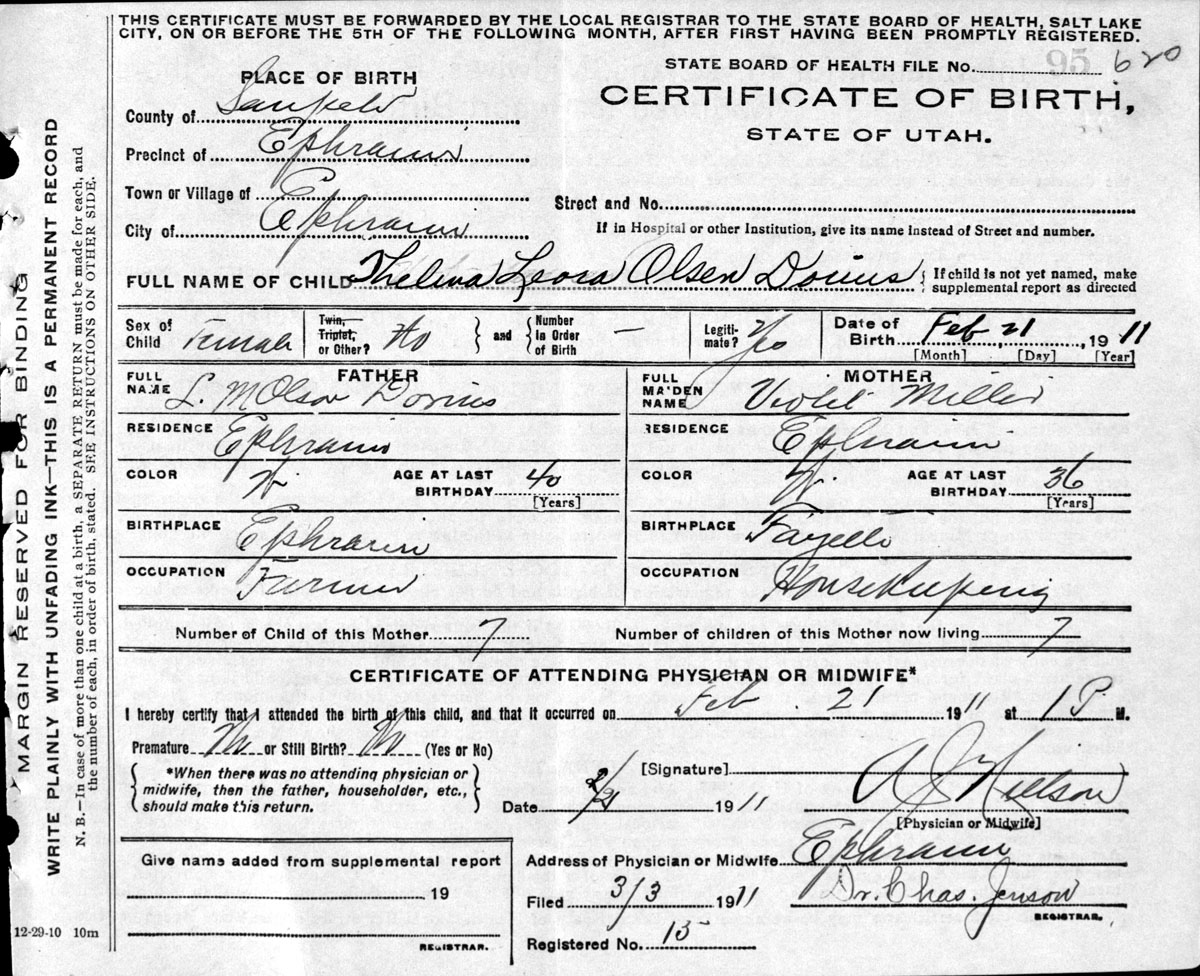 THIS CERTIFICATE MUST BE FORWARDED BY THE LOCAL REGISTRAR TO THE STATE BOARD OF HEALTH, SALT LAKE
CITY, ON OR BEFORE THE 5TH OF THE FOLLOWING MONTH, AFTER FIRST HAVING BEEN PROMPTLY REGISTERED.
STATE BOARD OF HEALTH FILE No. 95 620
CERTIFICATE OF BIRTH,
STATE OF UTAH.
PLACE OF BIRTH
County of Sanpete
Precinct of Ephraim
Town or Village of
City of Ephraim
Street and No.
If in Hospital or other Institution, give its name instead of Street and number.
FULL NAME OF CHILD Thelma Leora Olsen Dorius { If child is not yet named, make
supplemental report as directed
Sex of Child Female
Twin, Triplet, or Other? No } and { Number in Order of Birth —
Legitimate? Yes
Date of Birth Feb 21, 1911
[Month] [Day] [Year]
FATHER
FULL NAME L. M Olson Dorius
RESIDENCE Ephraim
COLOR W. AGE AT LAST BIRTHDAY 40
[Years]
BIRTHPLACE Ephraim
OCCUPATION Farmer
MOTHER
FULL MAIDEN NAME Violet Miller
RESIDENCE Ephraim
COLOR W. AGE AT LAST BIRTHDAY 36
[Years]
BIRTHPLACE Fayette
OCCUPATION Housekeeping
Number of Child of this Mother 7 Number of children of this Mother now living 7
CERTIFICATE OF ATTENDING PHYSICIAN OR MIDWIFE*
I hereby certify that I attended the birth of this child, and that it occurred on Feb. 21 1911 at 1 P. M.
Premature No or Still Birth? No (Yes or No)
{ *When there was no attending physician or
midwife, then the father, householder, etc.,
should make this return. }
[Signature] Nellson
Date 1911
[Physician or Midwife]
Give name added from supplemental report
19
REGISTRAR.
Address of Physician or Midwife Ephraim
Filed 3/3 1911 Dr. Chas. Jenson
REGISTRAR.
Registered No. 15
MARGIN RESERVED FOR BINDING
WRITE PLAINLY WITH UNFADING INK—THIS IS A PERMANENT RECORD
N. B.—In case of more than one child at a birth, a SEPARATE RETURN must be made for each, and
the number of each, in order of birth, stated. SEE INSTRUCTIONS ON OTHER SIDE.
12-29-10 10m